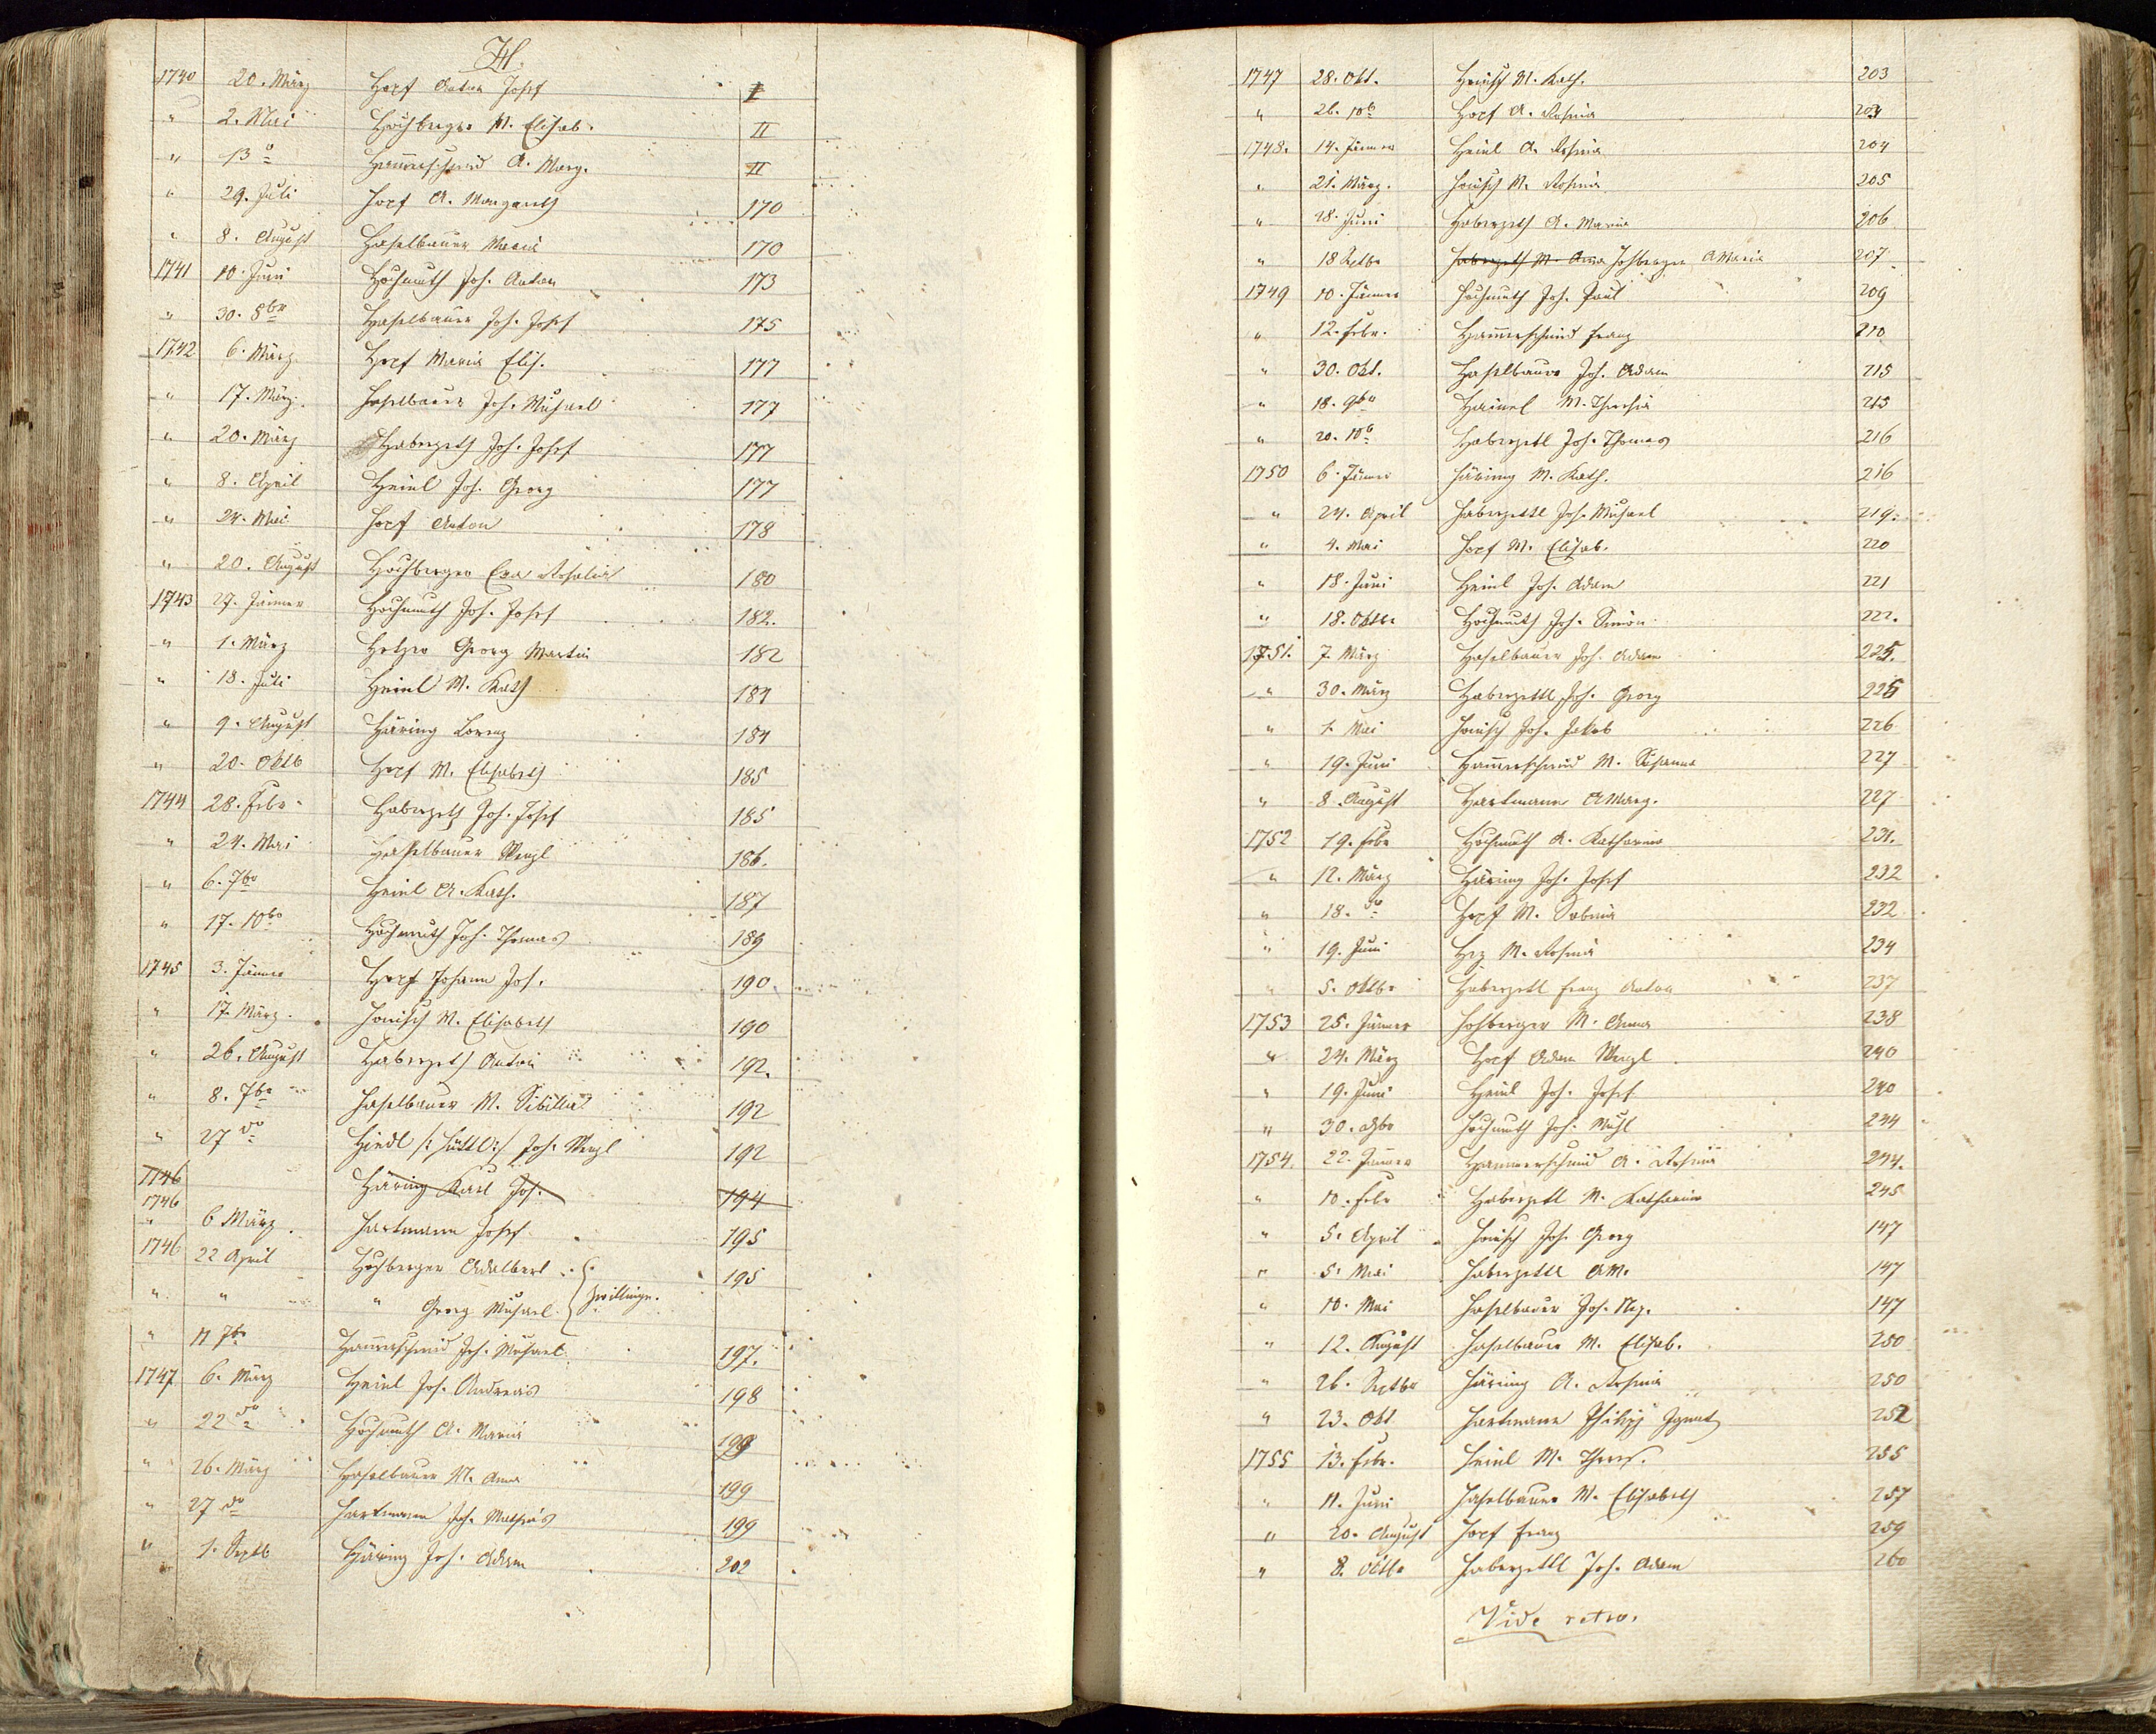 H.
1740 20. März Hopf Anton Josef I
" 2. Mai Hochberger M. Elisab. II
" 13 do Ham̅erschmid A. Marg. II
" 29. Juli Hopf A. Margareth 170
" 8. August Haselbauer Maria 170
1741 10. Juni Hochmuth Joh. Anton 173
" 30. 8br Haselbauer Joh. Josef 175
1742 6. März Hopf Maria Elis. 177
" 17. März Haselbauer Joh. Michael 177
" 20. März Haberzeth Joh. Josef 177
" 8. April Heinl Joh. Georg 177
" 24. Mai Hopf Anton 178
" 20. August Hochberger Eva Rosalia 180
1743 27. Jänner Hochmuth Joh. Josef 182.
" 1. März Georg Martin 182
" 18. Juli Heinl M. Kath 184
" 9. August Häring Lorenz 184
" 20. Oktb Hopf M. Elisabeth 185
1744 28. Febr. Haberzeth Joh. Josef 185
" 24. Mai Haselbauer Wenzl 186.
" 6. 7br Heinl A. Kath. 187
" 17. 10br Hochmuth Joh. Thomas 189
1745 3. Jänner Hopf Johann Jos. 190.
" 17. März. Honisch M. Elisabeth 190
" 26. August Haberzeth Anton 192.
" 8. 7br Haselbauer M. Sibilla 192
" 27 do Hiedl /: Hüttl :/ Joh. Wenzl 192
1746 Häring Karl Jos. 194
1746
" 6 März. Hartmann Josef 195
1746 22 April Hochberger Adalbert 195
" " " Georg Michael } Zwillinge.
" 11 7br Ham̅erschmid Joh. Michael 197.
1747 6. März Heinl Joh. Andreas 198
" 22 do Hochmuth A. Maria 199
" 26. März Haselbauer M. Anna 199
" 27 do Hartmann Joh. Mathias 199
" 1. Septb Häring Joh. Adam 202
1747 28. Okt. Honisch M. Kath. 203
" 26. 10b Hopf A. Rosina 204
1748. 14. Jänner Heinl A. Rosina 204
" 21. März. Honisch M. Rosina 205
" 18. Juni Haberzeth A. Maria 206
" 18 Septbr Haberzeth M. Anna Hohberger A Maria 207
1749 10. Jänner Hochmuth Joh. Paul 209
" 12. Febr. Ham̅erschmid Franz 210
" 30. Okt. Haselbauer Joh. Adam 215
" 18. 9br Heinel M. Theresia 215
" 20. 10b Haberzettl Joh. Thomas 216
1750 6. Jänner Häring M. Kath. 216
" 24. April Haberzettl Joh. Michael 219.
" 4. Mai Hopf M. Elisab. 220
" 18. Juni Heinl Joh. Adam 221
" 18. Oktbr Hochmuth Joh. Simon 222.
1751. 7. März Haselbauer Joh. Adam 225.
" 30. März Haberzettl Joh. Georg 225
" 1. Mai Honisch Joh. Jakob 226
" 19. Juni Ham̅erschmid M. Susanna 227
" 8. August Hartmann A Marg. 227
1752 19. Febr Hochmuth A. Katharina 231.
" 12. März Häring Joh. Josef 232
" 18. do Hopf M. Sabina 232
" 19. Juni M. Rosina 234
" 5. Oktbr Haberzettl Franz Anton 237
1753 25. Jänner Hohberger M. Anna 238
" 24. März Hopf Adam Wenzl 240
" 19. Juni Heinl Joh. Josef 240
" 30. Hochmuth Joh. Michl 244
1754. 22. Jänner Hammerschmid A. Rosina 244.
" 10. Febr Haberzettl M. Katharina 245
" 5. April Honisch Joh. Georg 147
" 5. Mai Haberzettl A M. 147
" 10. Mai Haselbauer Joh. Nep. 147
" 12. August Haselbauer M. Elisab. 250
" 26. Septbr Häring A. Rosina 250
" 23. Okt Hartmann Philipp Ignatz 252
1755 13. Febr. Heinl M. Theres. 255
" 11. Juni Haselbauer M. Elisabeth 257
" 20. August Hopf Franz 259
" 8. Oktbr Haberzettl Joh. Adam 260
Vide retro.